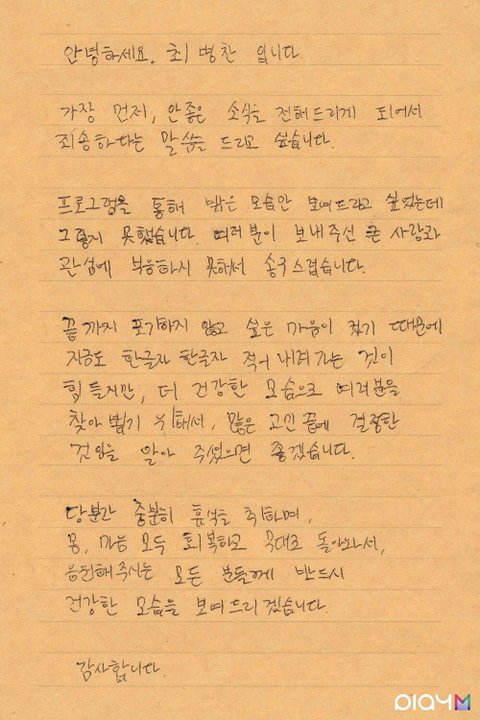 안녕하세요. 최병찬 입니다.
가장 먼저, 안좋은 소식을 전해드리게 되어서
죄송하다는 말씀을 드리고 싶습니다.
프로그램을 통해 밝은 모습만 보여드리고 싶었는데
그렇지 못했습니다. 여러분이 보내주신 큰 사랑과
관심에 부응하지 못해서 송구스럽습니다.
끝까지 포기하지 않고 싶은 마음이 컸기 때문에
지금도 한글자 한글자 적어 내려가는 것이
힘들지만, 더 건강한 모습으로 여러분을
찾아뵙기 위해서, 많은 고민 끝에 결정한
것임을 알아 주셨으면 좋겠습니다.
당분간 충분히 휴식을 취하며,
몸, 마음 모두 회복하고 무대로 돌아와서,
응원해주시는 모든 분들께 반드시
건강한 모습을 보여드리겠습니다.
감사합니다.
PlayM